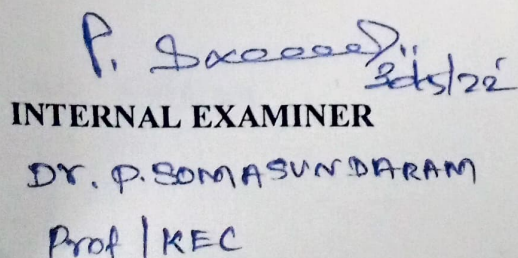 P.
30/5/22
INTERNAL EXAMINER
Dr. P. SOMASUNDARAM
Prof / KEC